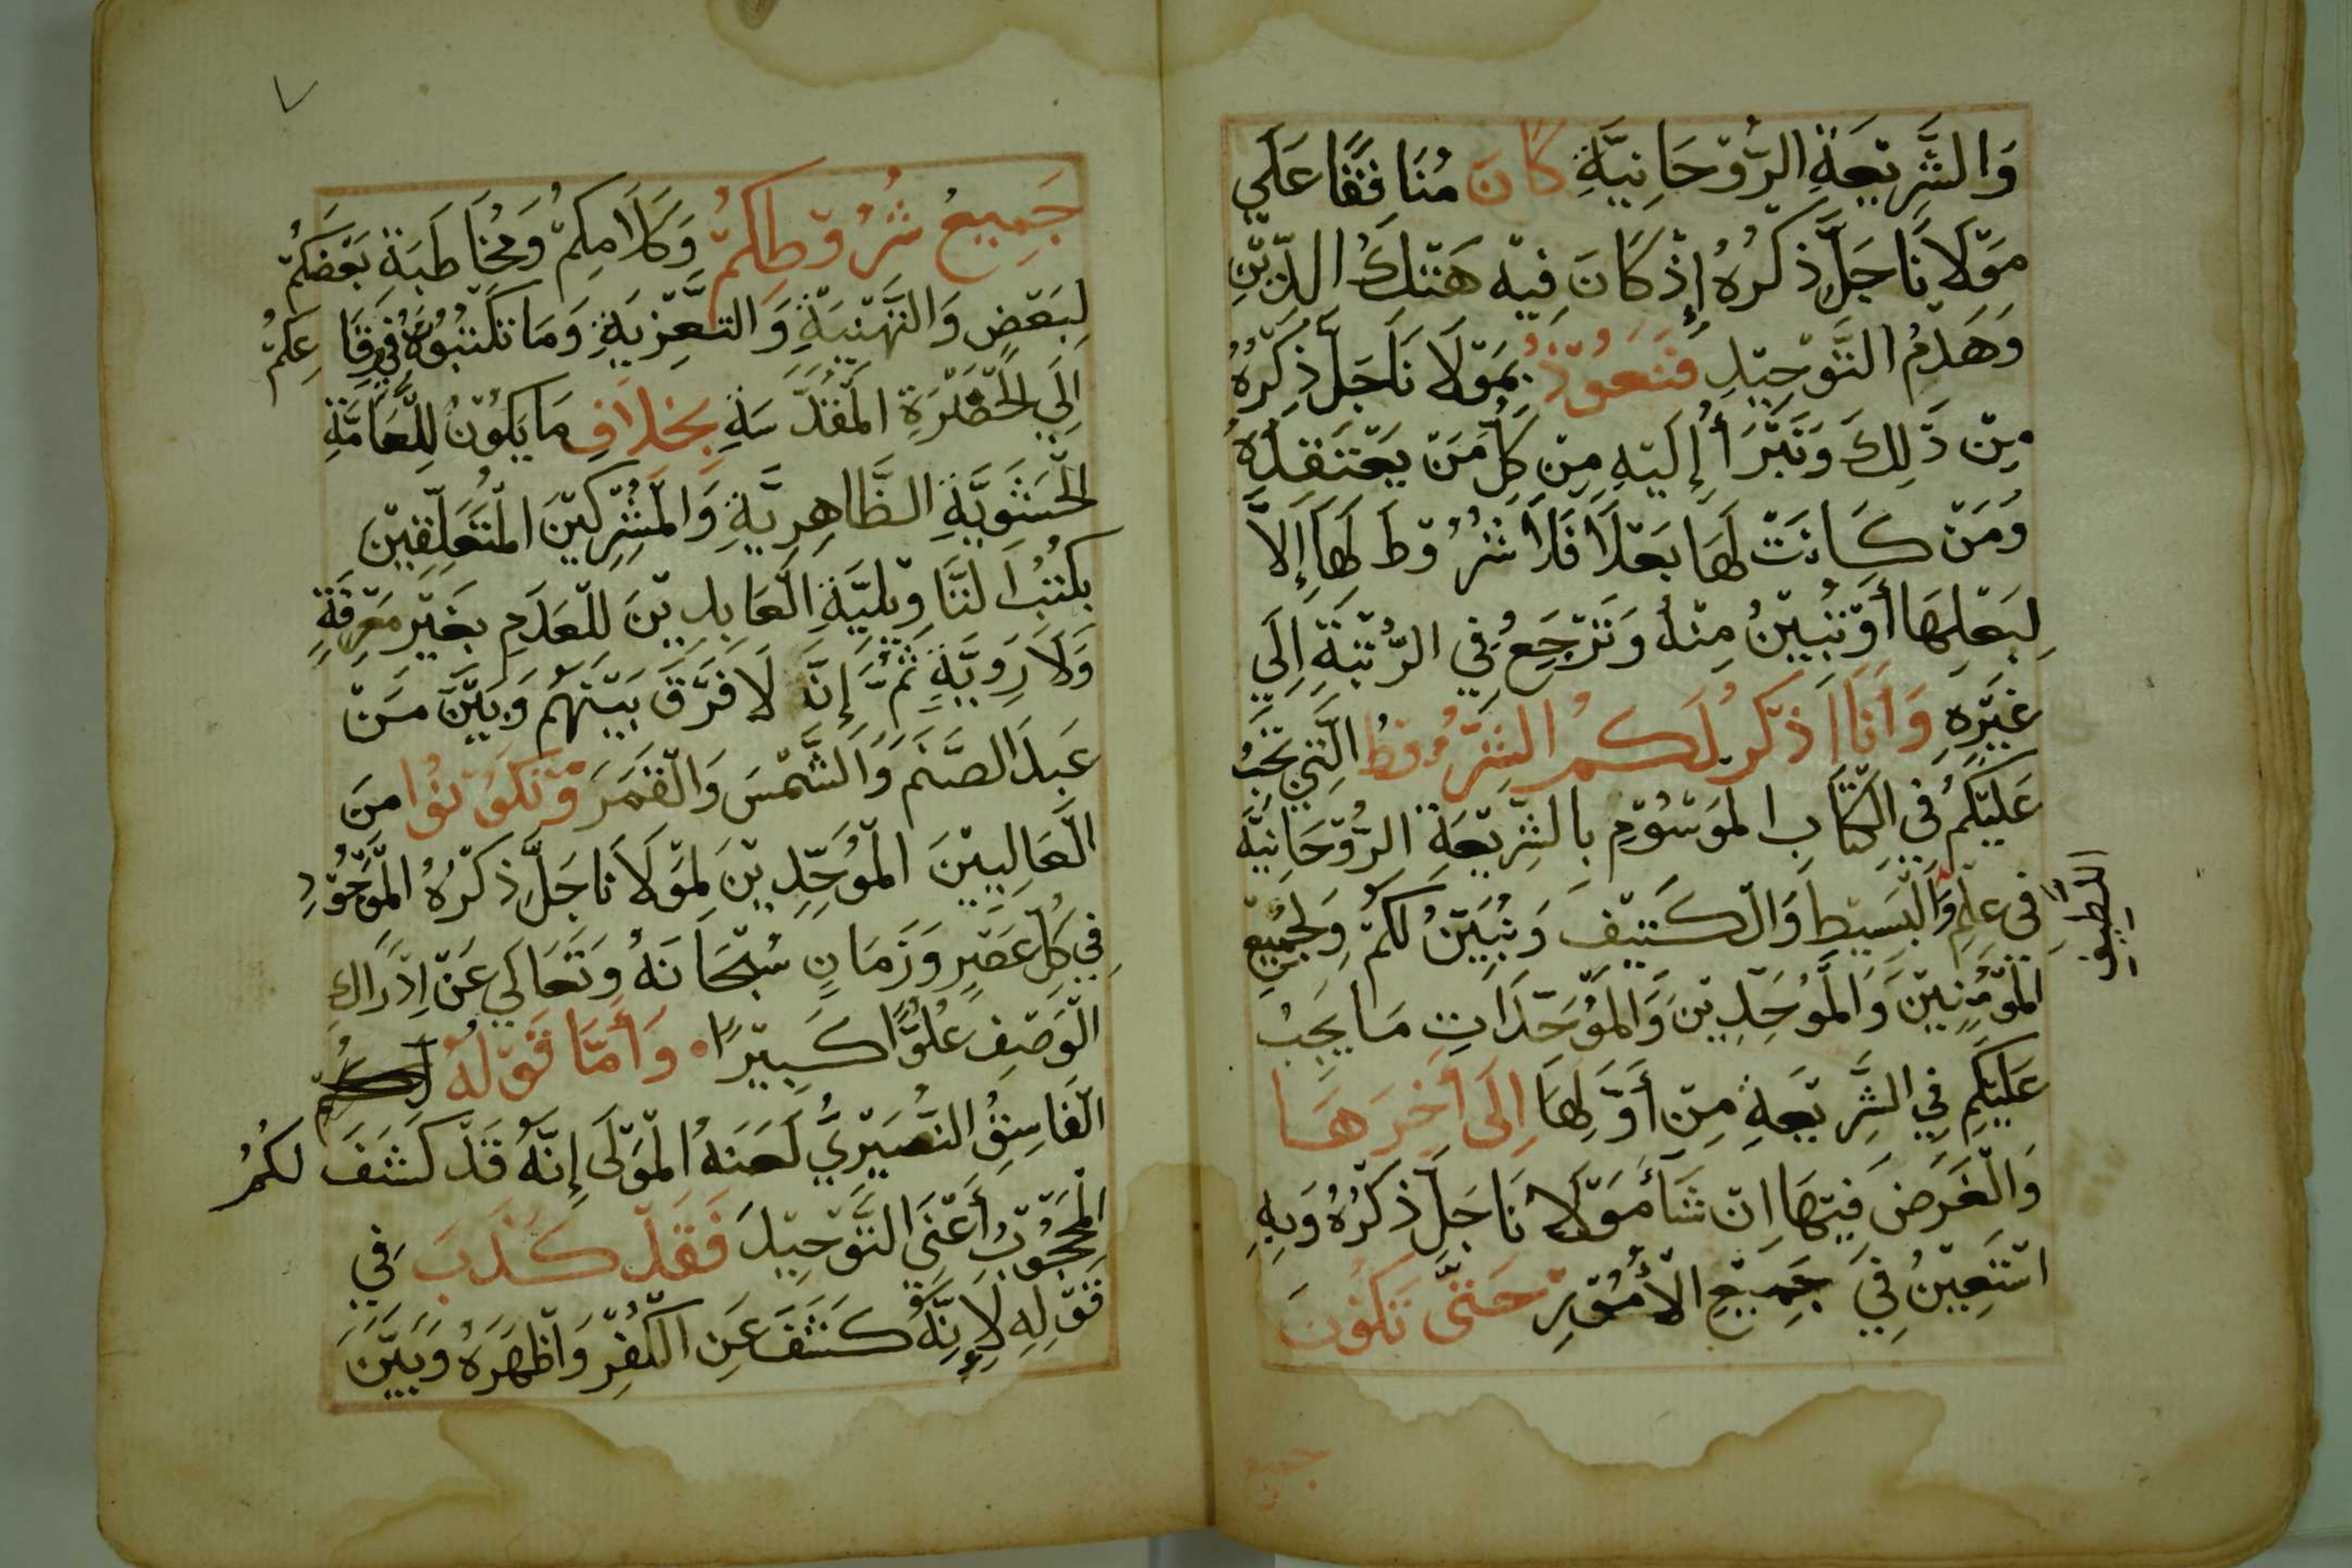 وَالشَّرِيْعَةِ الرُّوْحَانِيَّةِ كَانَ مُنَافِقًا عَلَي
مَوْلَانَا جَلَّ ذِكْرُهُ إِذْ كَانَ فِيْهِ هَتْكُ الدِّيْنِ
وَهَدْمُ التَّوْحِيْدِ فَنَعُوْذُ بِمَوْلَانَا جَلَّ ذِكْرُهُ
مِنْ ذَلِكَ وَنَتْبَرَأُ إِلَيْهِ مِنْ كُلِّ مَنْ يَعْتَقِدُهُ
وَمَنْ كَانَتْ لَهَا بَعْلًا فَلَا شُرُوْطَ لَهَا إِلَّا
لِبَعْلِهَا أَوْ تَبِيْنُ مِنْهُ وَتَرْجِعُ فِي الرُّتْبَةِ اِلَي
غَيْرِهِ وَأَنَا اذْكُر لَكُمُ الشُّرُوْطُ الَّتِي تَجِبُ
عَلَيْكُمْ فِي الكِتَابِ المَوْسُوْمِ بِالشَّرِيْعَةِ الرُّوْحَانِيَّة
فِي عِلْمِ وَالْبَسِيْطِ وَالْكَثِيْفَ وَنُبَيِّنُ لَكُمْ وَلِجَمِيْعِ
اللطيف
المُؤْمِنِيْنَ وَالْمُوَحِّدِيْنَ وَالْمُوَحِّدَاتِ مَا يَجِبُ
عَلَيْكُم فِي الشَّرِيْعَةِ مِنْ أَوَّلِهَا اِلَى أَخِرِهَا
وَالْغَرَضَ فِيْهَا اِنْ شَأَ مَوْلَانَا جَلَّ ذِكْرُهُ وَبِهِ
اسْتَعِيْنُ فِي جَمِيْعِ الْأُمُوْرِ حَتَّى تَكُوْنَ
جميع
٧
جَمِيْعُ شُرُوْطِكُمْ وَكَلَامِكُمْ وَمُخَاطَبَةِ بَعْضِكُمْ
لِبَعْضٍ وَالتَّهْنِيَةِ وَالتَّعْزِيَةِ وَمَا تَكْتُبُوْهُ فِي رِقَاعِكُمْ
اِلَي الحَضْرَةِ المُقَدَّسَةِ بِخِلَافِ مَا يَكُوْنُ لِلْعَامَّةِ
الحَشَوِيَّةِ الظَّاهِرِيَّةِ وَالْمُشْرِكِيْنَ المُتَعَلِّقِيْنَ
بِكُتُبِ التَّاوِيْلِيَّةِ العَابِدِيْنَ لِلْعَدَمِ بِغَيْرِ مَعْرِفَةٍ
وَلَا رَوِيَّةٍ ثُمَّ إِنَّهُ لَا فَرْقَ بَيْنَهُم وَبَيْنَ مَنْ
عَبَدَ الصَّنَم وَالشَّمْسَ وَالْقَمَرَ وَتَكُوْنُوا مِنَ
الْعَالِيِيْنَ المُوَحِّدِيْنَ لِمَوْلَانَا جَلَّ ذِكْرُهُ المَوْجُوْدِ
فِي كُلِّ عَصْرٍ وَزَمَانٍ سُبْحَانَهُ وَتَعَالَي عَنْ اِدْرَاكِ
الْوَصْفِ عُلُوًّا كَبِيْرًا وَأَمَّا قَوْلُهُ
الْفَاسِقُ النُّصَيْرِيُّ لَعَنَهُ الْمَوْلَى إِنَّهُ قَدْ كَشَفَ لَكُمْ
الْمَحْجُوْبَ أَعْنِي التَّوْحِيْدَ فَقَدْ كَذَبَ فِي
قَوْلِهِ لِإِنَّهُ كَشَفَ عَنِ الْكُفْرِ وَاظْهَرَهُ وَبَيَّنَ